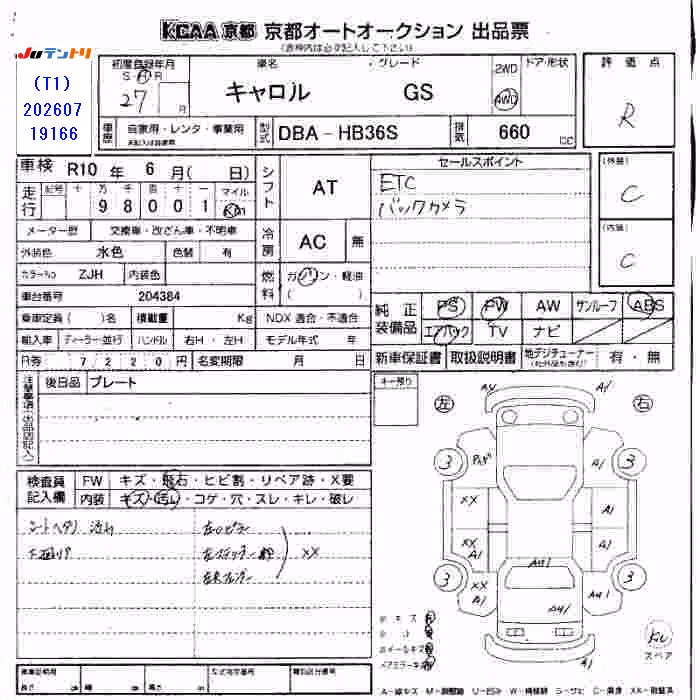 KCAA 京都 京都オートオークション 出品票
(赤枠内は必ず記入して下さい)
JUテントリ
(T1)
202607
19166
初度登録年月
S・H・R
27 月
車名
キャロル
グレード
GS
2WD
4WD
ドア・形状
評価点
R
車歴
自家用・レンタ・事業用
型式
DBA - HB36S
排気
660 cc
車検 R10 年 6 月( 日)
走行
記号 十 万 千 百 十 一 マイル
9 8 0 0 1 Km
シフト
AT
セールスポイント
ETC
バックカメラ
(外装)
C
(内装)
C
メーター歴 交換車・改ざん車・不明車
外装色 水色 色替 有
冷房
AC 無
カラーNo ZJH 内装色
燃料
ガソリン・軽油
( )
車台番号 204384
乗車定員 ( )名 積載量 Kg NOX 適合・不適合
輸入車 ディーラー・並行 ハンドル 右H・左H モデル年式 年
R券 7220円 名変期限 月 日
純正装備品
PS PW AW サンルーフ ABS
エアバック TV ナビ
新車保証書 取扱説明書 地デジチューナー 有・無
注意事項(出品店記入)
後日品 プレート
キー預り
左 右
検査員記入欄
FW キズ・飛石・ヒビ割・リペア跡・X要
内装 キズ・汚れ・コゲ・穴・スレ・キレ・破レ
シートヘタリ 汚れ
下廻りサ
左ロッカー
XX
A4 A1
3 3
A1 A1
XX A1
XX A1
A1
XX A1
A41
A41
A41
3 3
スペア